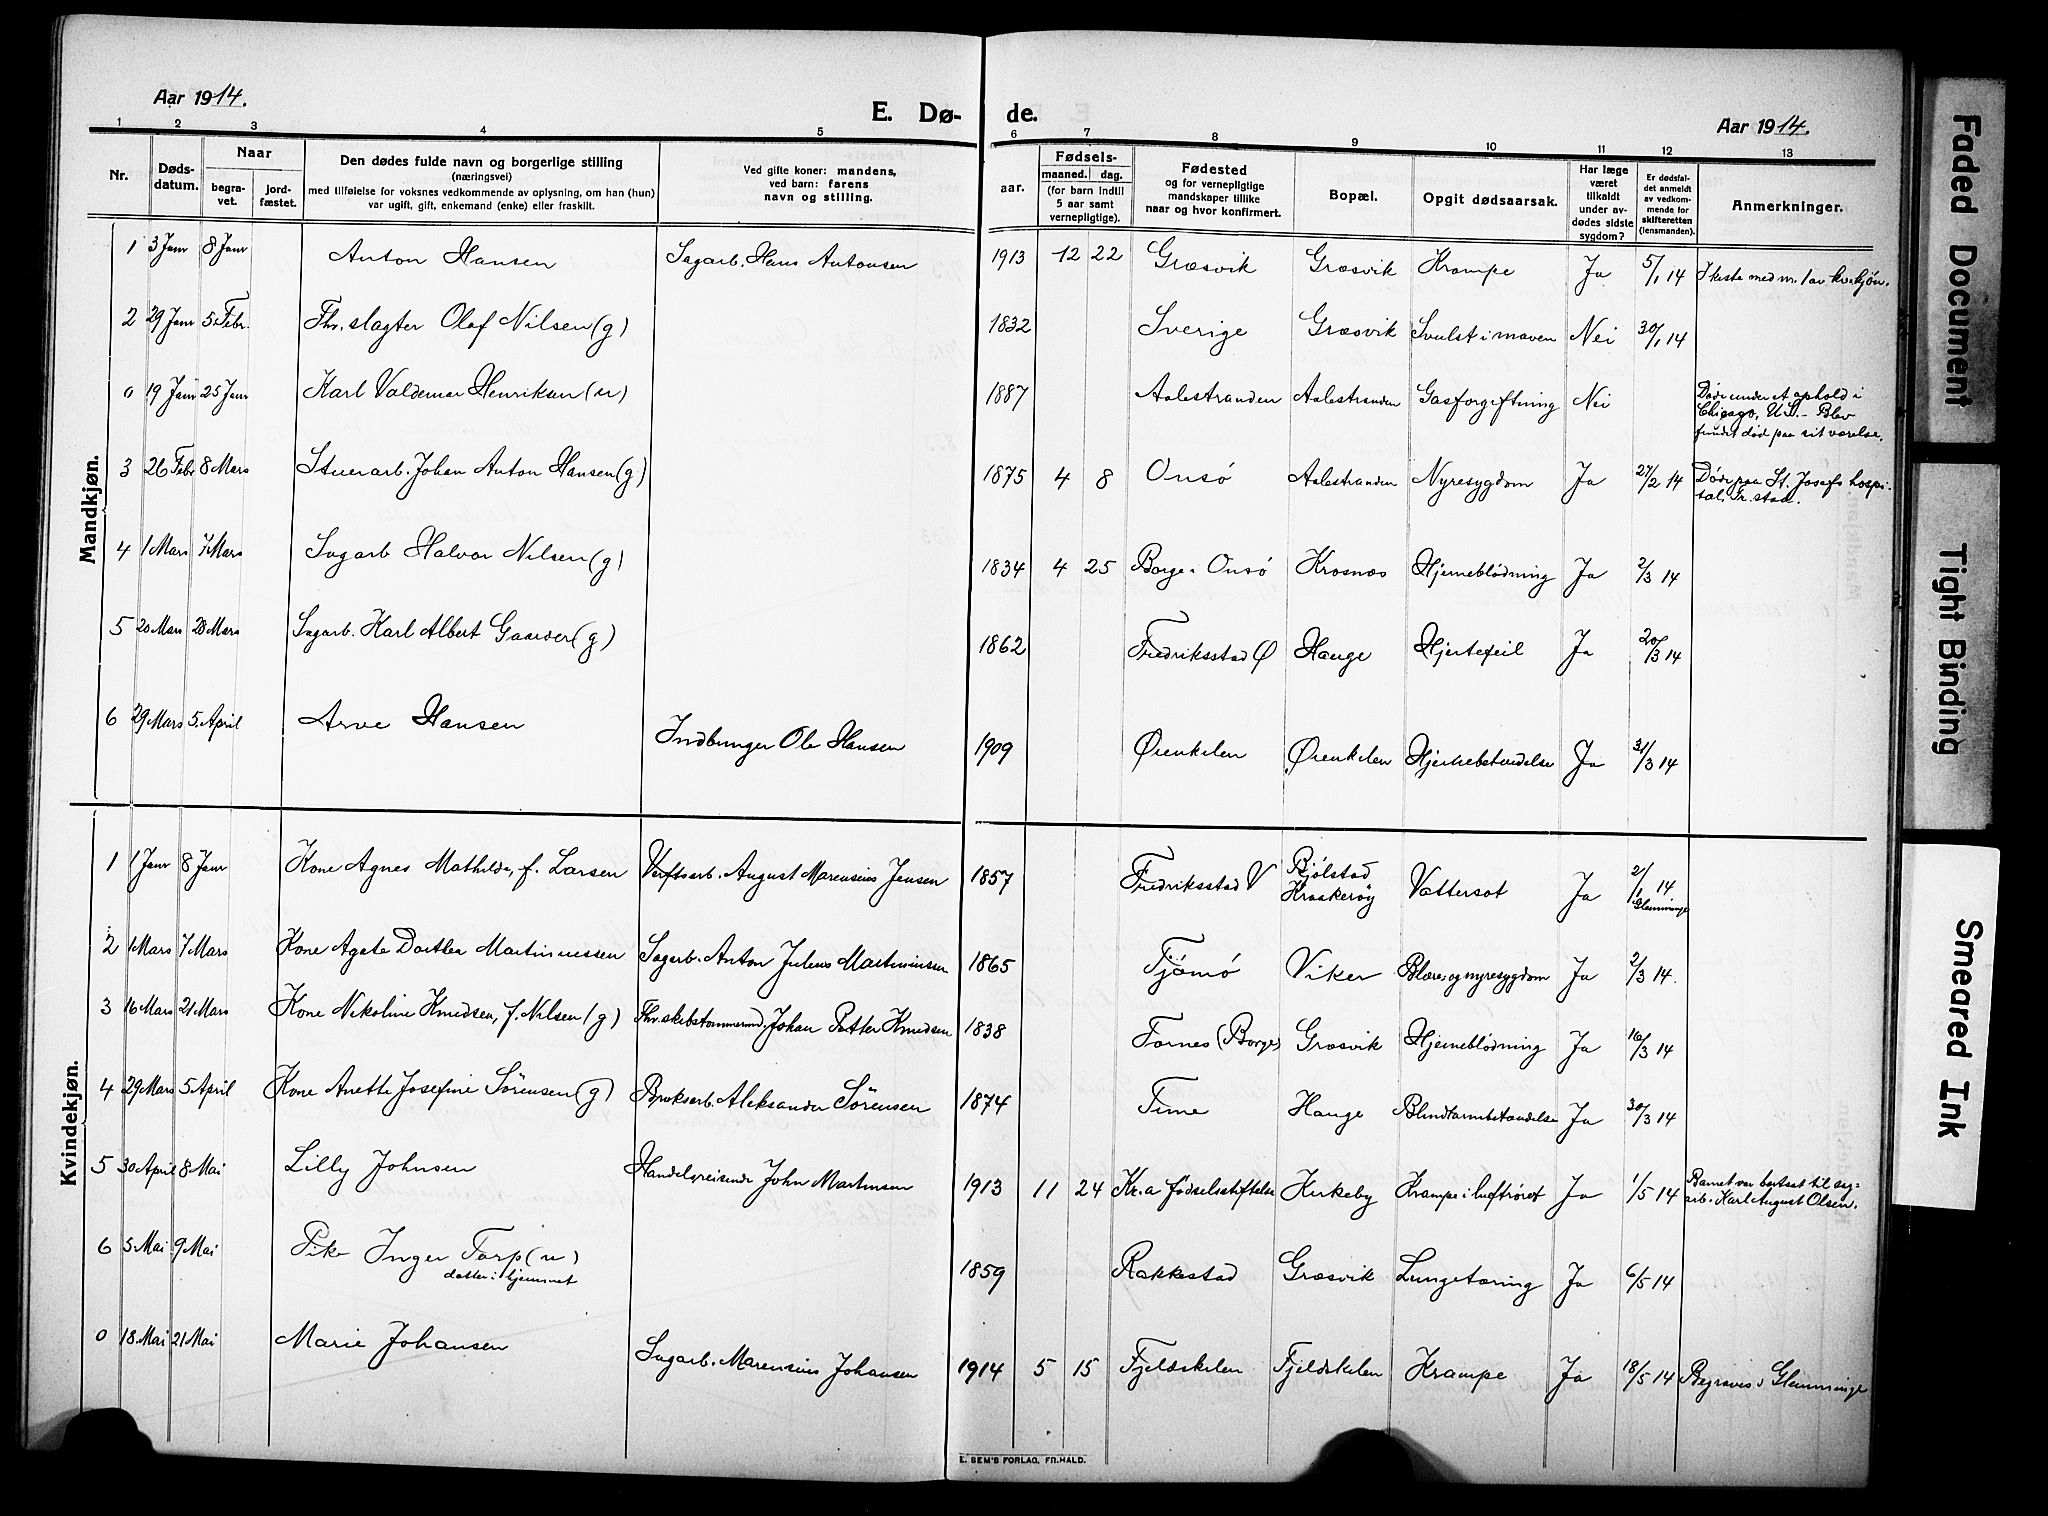 Aar 1914.
E. Dø- de.
Aar 1914.
1 2 3 4 5 6 7 8 9 10 11 12 13
Nr. Døds-datum. Naar begra-vet. jord-fæstet. Den dødes fulde navn og borgerlige stilling (næringsvei) med tilføielse for voksnes vedkommende av oplysning, om han (hun) var ugift, gift, enkemand (enke) eller fraskilt. Ved gifte koner: mandens, ved barn: farens navn og stilling. Fødsels- aar. maaned. dag. (for barn indtil 5 aar samt vernepligtige). Fødested og for vernepligtige mandskaper tillike naar og hvor konfirmert. Bopæl. Opgit dødsaarsak. Har læge været tilkaldt under av-dødes sidste sygdom? Er dødsfal-det anmeldt av vedkom-mende for skifteretten (lensmanden). Anmerkninger.
Mandkjøn.
1 3 Janr 8 Janr Anton Hansen Sagarb. Hans Antonsen 1913 12 22 Græsvik Græsvik Krampe Ja 5/1 14 I kiste med nr. 1 av kv.kjøn.
2 29 Janr 5. Febr. Fhv. slagter Olaf Nilsen (g) 1832 Sverige Græsvik Svulst i maven Nei 30/1 14
0 19 Janr 25 Janr Karl Valdemar Henriksen (u) 1887 Aalestranden Aalestranden Gasforgiftning Nei Døde under et ophold i
Chicago, U.S. - Blev
fundet død paa sit værelse.
3 26 Febr 8 Mars Stuerarb. Johan Anton Hansen (g) 1875 4 8 Onsö Aalestranden Nyresygdom Ja 27/2 14 Døde paa St. Josefs hospi-
tal, Fr.stad.
4 1 Mars 7 Mars Sagarb Halvor Nilsen (g) 1834 4 25 Borge i Onsö Krosnæs Hjerneblödning Ja 2/3 14
5 20 Mars 28 Mars Sagarb. Karl Albert Gaarder (g) 1862 Fredriksstad Ø Hauge Hjertefeil Ja 20/3 14
6 29 Mars 5. April Arve Hansen Indbringer Ole Hansen 1909 Ørenkilen Ørenkilen Hjernebetændelse Ja 31/3 14
Kvindekjøn.
1 1 Janr 8 Janr Kone Agnes Mathilde, f. Larsen Verftsarb. August Marensius Jensen 1857 Fredriksstad V Bjölstad
Kraakeröy Vattersot Ja 2/1 14
Glemminge
2 1 Mars 7 Mars Kone Agete Dorthea Martinussen Sagarb. Anton Julius Martinussen 1865 Tjömö Viker Blære- og nyresygdom Ja 2/3 14.
3 16 Mars 21 Mars Kone Nikoline Knudsen, f. Nilsen (g) Fhv. skibstømmermd. Johan Petter Knudsen 1838 Tornes (Borge) Græsvik Hjerneblödning Ja 16/3 14
4 29 Mars 5 April Kone Anette Josefine Sörensen (g) Bruksarb. Aleksander Sörensen 1874 Time Hauge Blindtarmbetændelse Ja 30/3 14
5 30 April 8 Mai Lilly Johnsen Handelsreisende John Martinsen 1913 11 24 Kr.a födselsstiftelse Kirkeby Krampe i luftröret Ja 1/5 14 Barnet var bortsat til sag-
arb. Karl August Olsen.
6 5 Mai 9 Mai Pike Inger Torp (u)
datter i hjemmet 1859 Rakkestad Græsvik Lungetæring Ja 6/5 14
0 18. Mai 21 Mai Marie Johansen Sagarb. Marensius Johansen 1914 5 15 Fjeldskilen Fjeldskilen Krampe Ja 18/5 14 Begraves i Glemminge
E. SEM'S FORLAG, FR.HALD.
Faded Document
Tight Binding
Smeared Ink